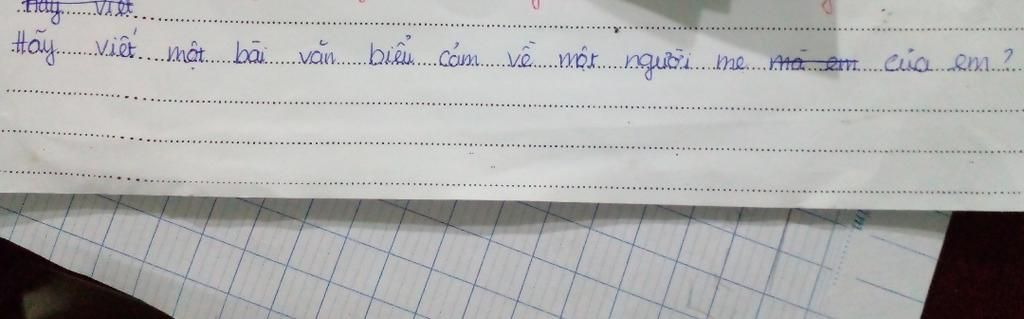 Hãy viết
Hãy viết một bài văn biểu cảm về một người mẹ mà em của em?